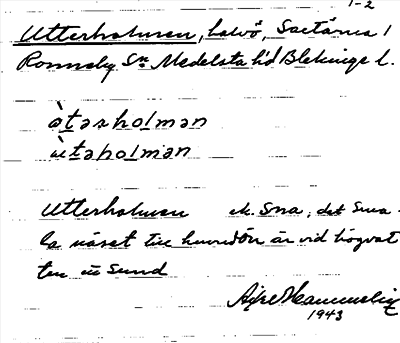 1-2
Utterholmen, halvö, Saxtärna 1
Ronneby Sn Medelsta hd Blekinge l.
ùtərholmən
ùtəholmən
Utterholmen ek. Sna, det sma-
la näset till huvudön är vid högvat
ten ett sund
1943